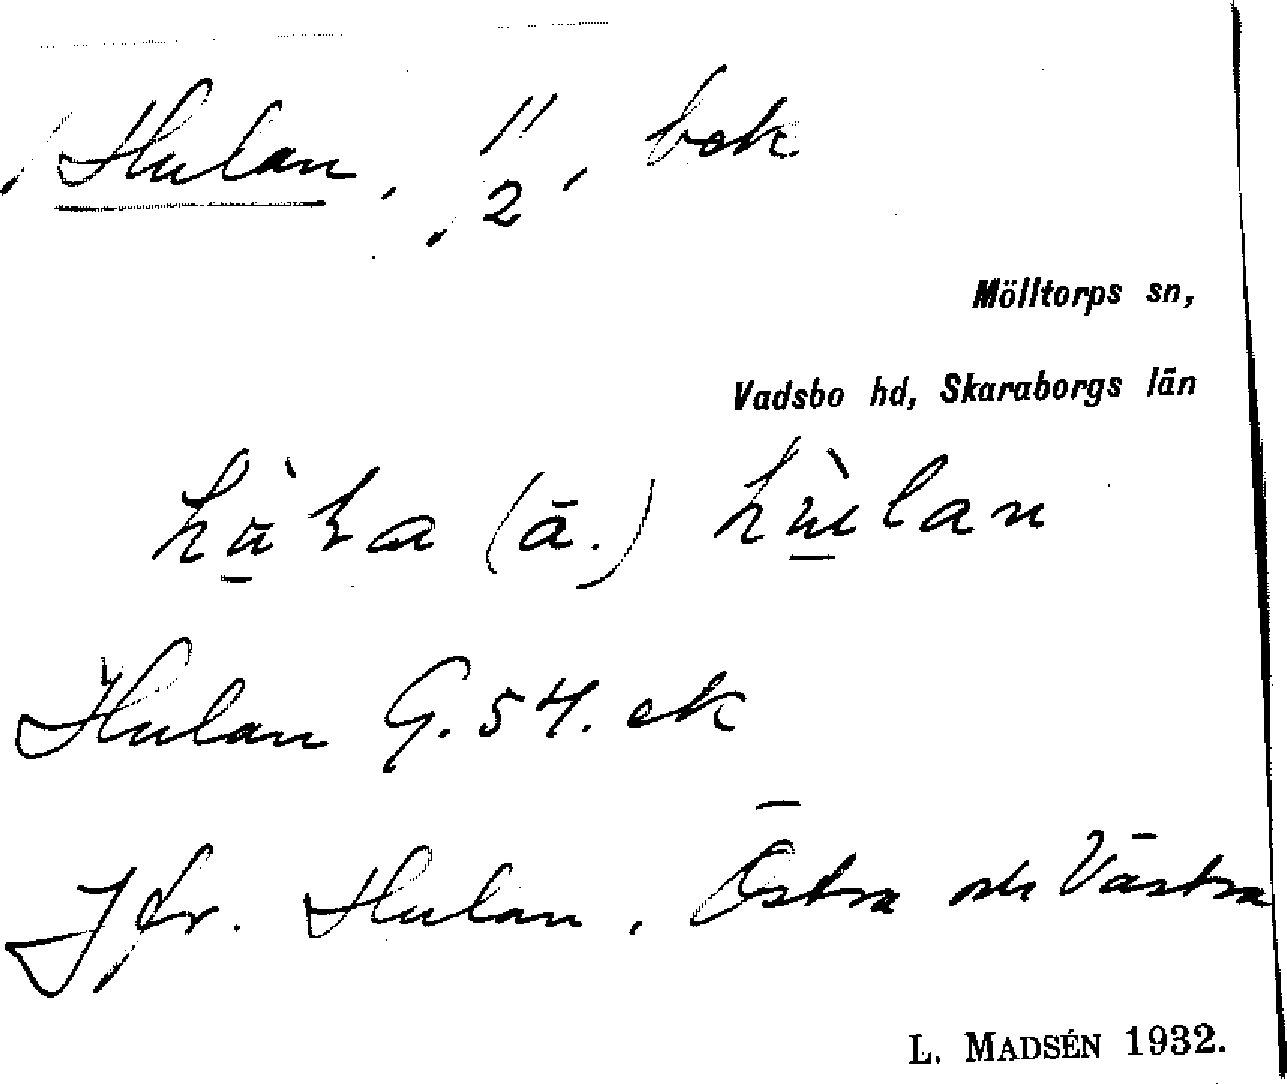 Hulan, 1/2, bek
Mölltorps sn,
Vadsbo hd, Skaraborgs län
(ä.)
Hulan G. 54. ek
Jfr. Hulan, Östra och Västra
L. MADSÉN 1932.